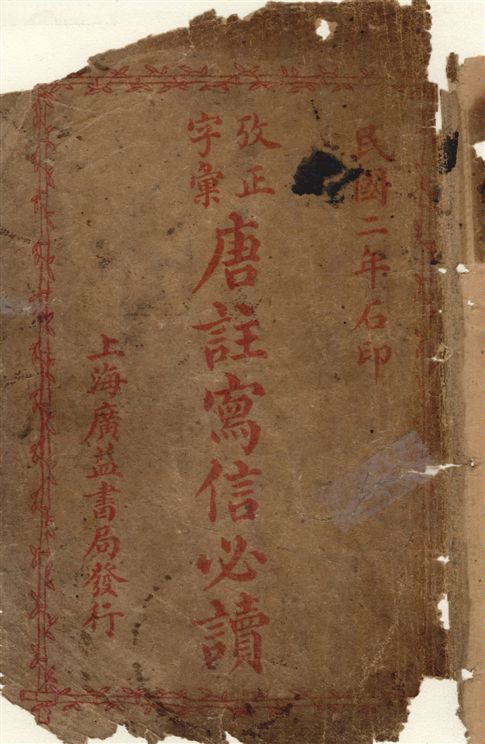 民國二年石印
攷正
字彙
唐註寫信必讀
上海廣益書局發行